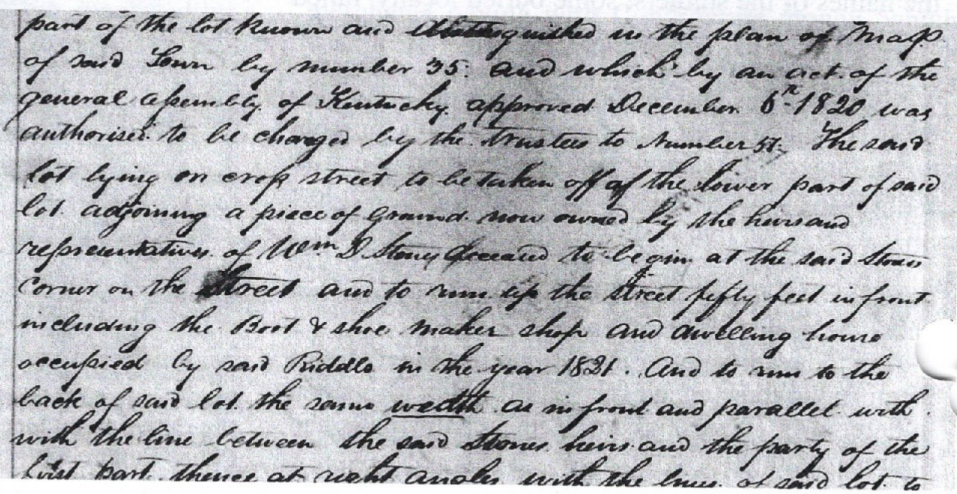 part of the lot known and distinguished in the plan of Map
of said Town by number 35. and which by an act of the
general assembly of Kentucky approved December 6th 1820 was
authorised to be changed by the trustees to Number 51. The said
lot lying on cross street to be taken off of the lower part of said
lot adjoining a piece of ground now owned by the heirs and
representatives of Wm D Stone deceased to begin at the said Stones
corner on the Street and to run up the street fifty feet in front
including the Boot & shoe maker shop and dwelling house
occupied by said Riddle in the year 1821. And to run to the
back of said lot the same wedth as in front and parallel with
with the line between the said Stones heirs and the party of the
first part thence at right angles with the lines of said lot to